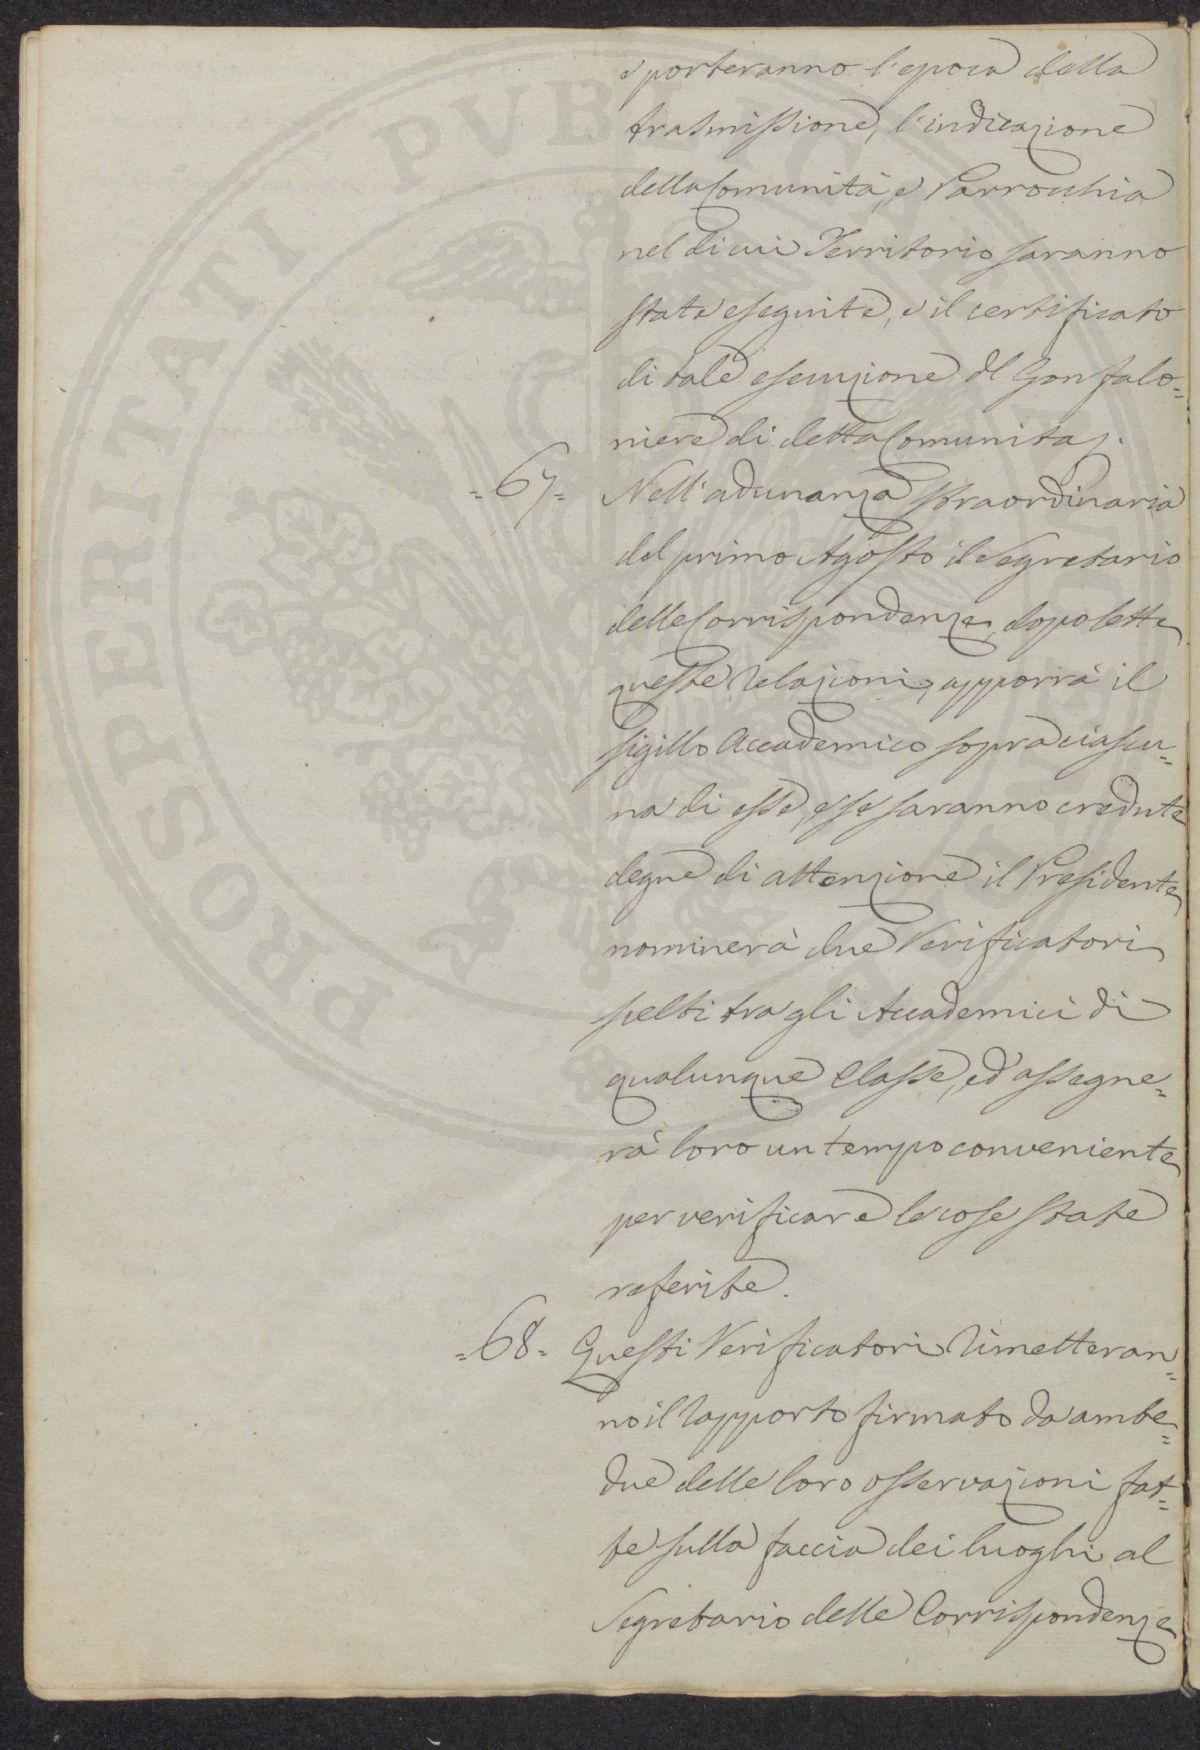 e porteranno l'epoca della
trasmissione, l'indicazione
della Comunità, e Parrochia
nel di cui Territorio saranno
state eseguite, e il certificato
di tale esecuzione del Gonfalo=
niere di detta Comunità.
=67= Nell'adunanza straordinaria
del primo Agosto il Segretario
delle Corrispondenze, dopo lette
queste relazioni, apporrà il
sigillo Accademico sopra ciascu=
na di esse, e se saranno credute
degne di attenzione il Presidente
nominerà due Verificatori
scelti tra gli Accademici di
qualunque Classe, ed'assegne=
rà loro un tempo conveniente
per verificare le cose state
referite.
=68= Questi Verificatori rimetteran=
no il rapporto firmato da ambe=
due delle loro osservazioni fat=
te sulla faccia dei luoghi al
Segretario delle Corrispondenze
PROSPERITATI PUBLICAE